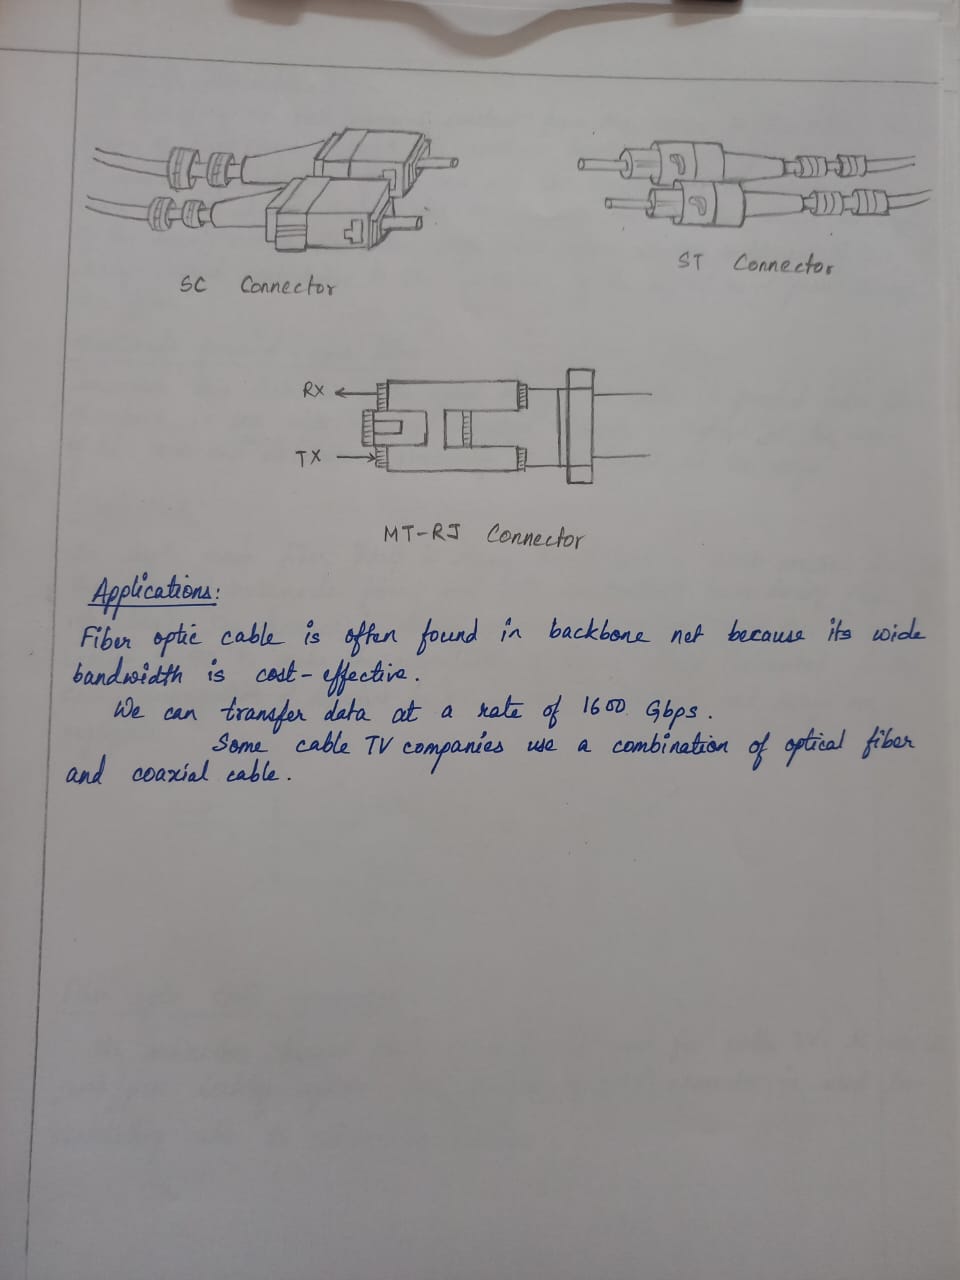 SC Connector
ST Connector
RX
TX
MT-RJ Connector
Applications:
Fiber optic cable is often found in backbone net because its wide
bandwidth is cost-effective.
We can transfer data at a rate of 1600 Gbps.
Some cable TV companies use a combination of optical fiber
and coaxial cable.